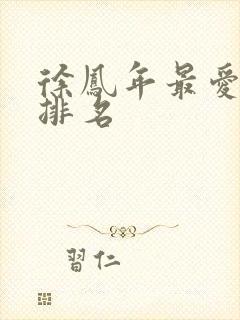 徐鳳年最愛
排名
習仁